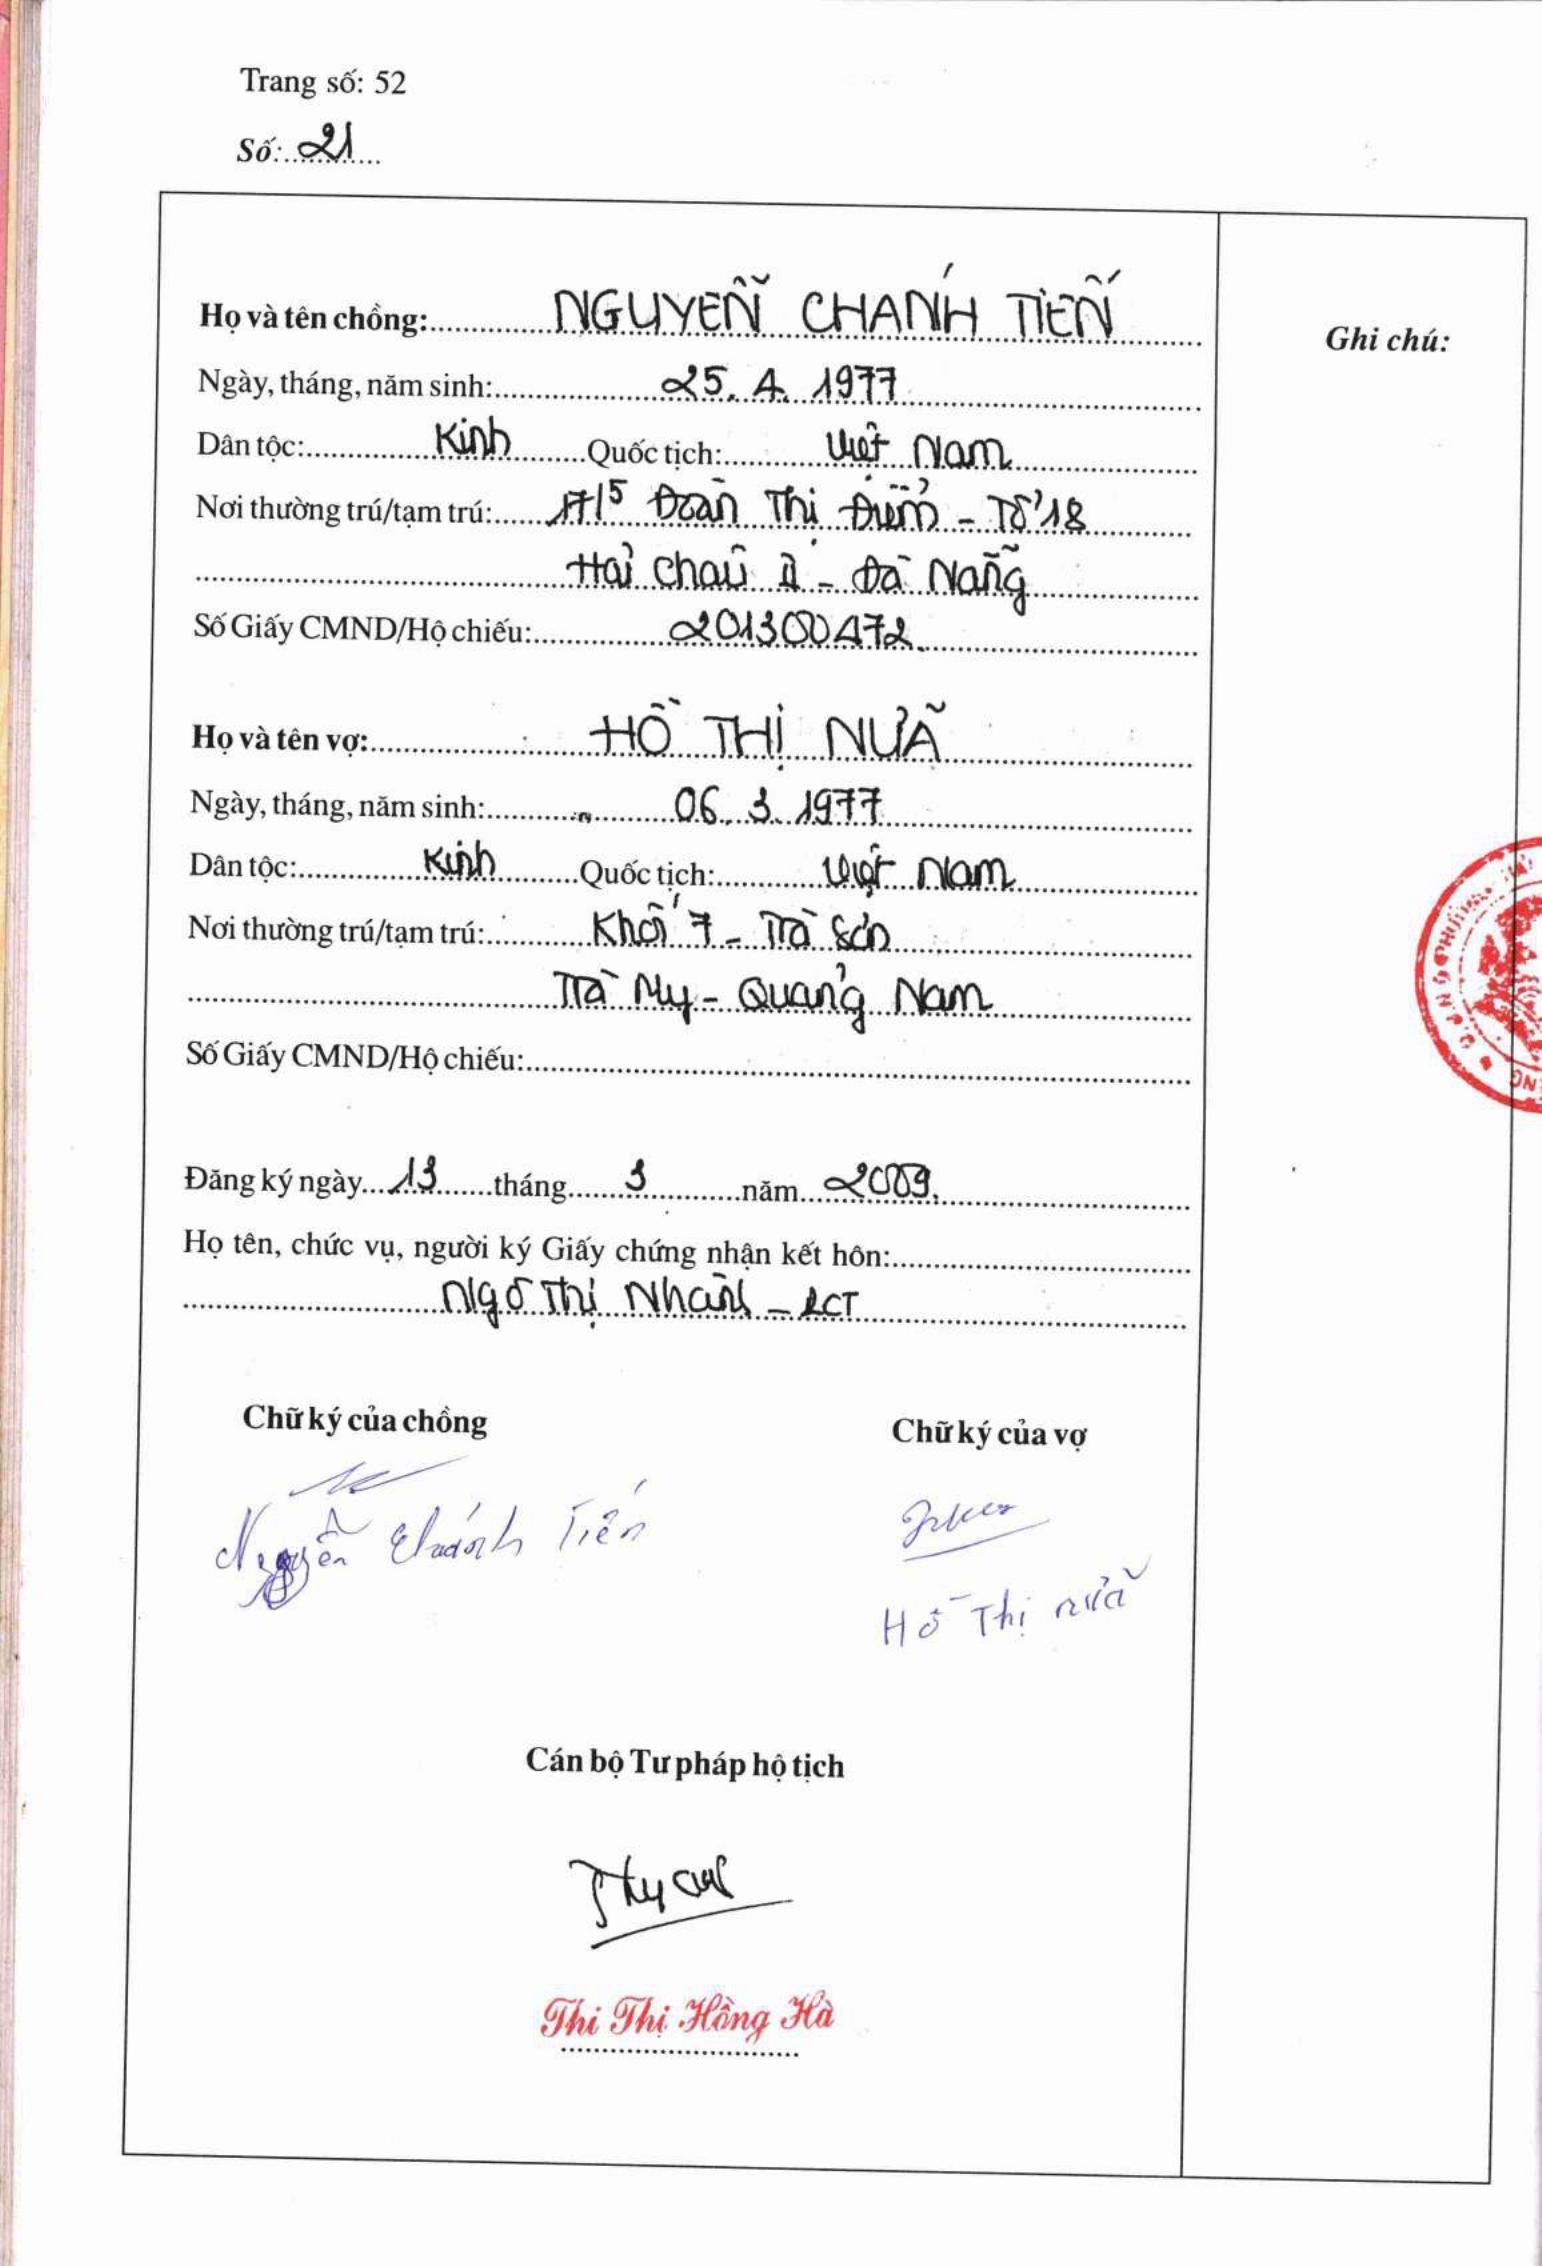 Trang số: 52
Số: 21
Họ và tên chồng: NGUYỄN CHÁNH TIẾN
Ghi chú:
Ngày, tháng, năm sinh: 25. 4. 1977
Dân tộc: Kinh Quốc tịch: Việt Nam
Nơi thường trú/tạm trú: 17/5 Đoàn Thị Điểm - Tổ 18
Hải Châu II - Đà Nẵng
Số Giấy CMND/Hộ chiếu: 201300472
Họ và tên vợ: HỒ THỊ NỮA
Ngày, tháng, năm sinh: 06. 3. 1977
Dân tộc: Kinh Quốc tịch: Việt Nam
Nơi thường trú/tạm trú: Khối 7 - Trà Sơn
Trà My - Quảng Nam
Số Giấy CMND/Hộ chiếu:
Đăng ký ngày 13 tháng 3 năm 2009.
Họ tên, chức vụ, người ký Giấy chứng nhận kết hôn:
Ngô Thị Nhành - PCT
Chữ ký của chồng
Chữ ký của vợ
Nguyễn Chánh Tiến
Hồ Thị Nữa
Cán bộ Tư pháp hộ tịch
Thi Thị Hồng Hà